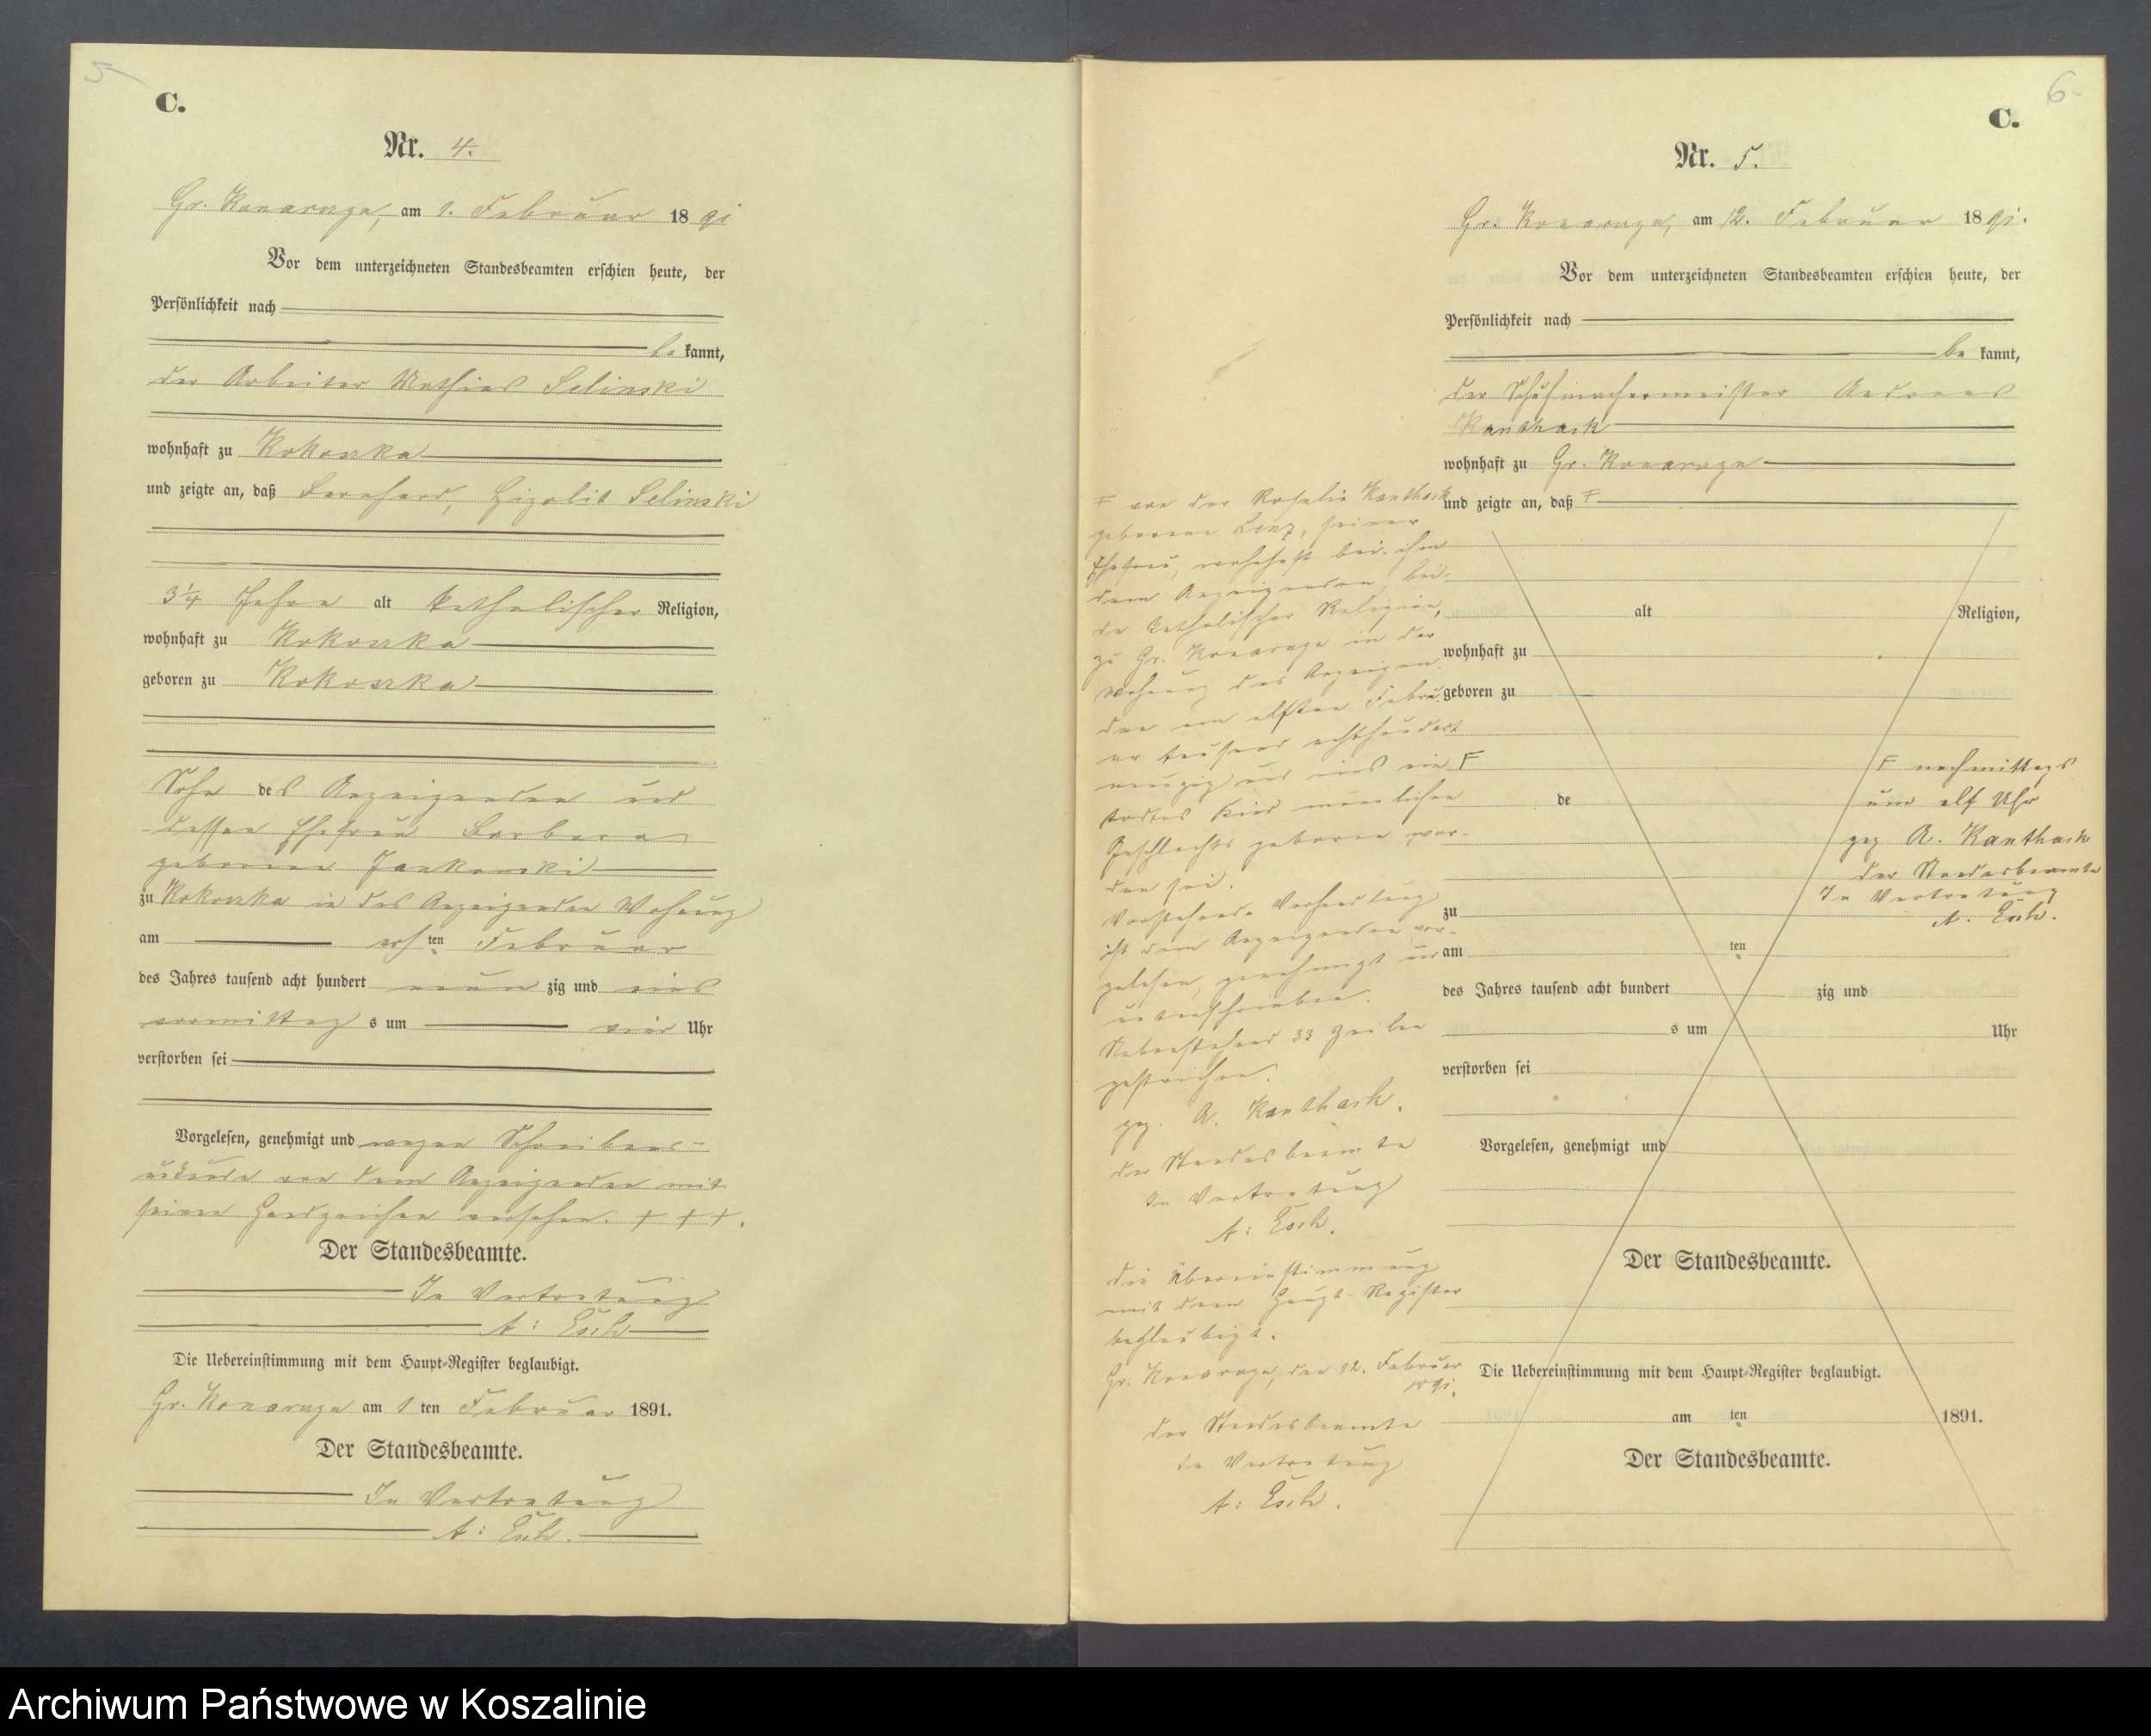 5
C.
Nr. 4.
Gr. Konarzyn, am 1. Februar 1891
Vor dem unterzeichneten Standesbeamten erschien heute, der
Persönlichkeit nach
be kannt,
der Arbeiter Mathias Selinski
wohnhaft zu Kokoszka
und zeigte an, daß Bernhard, Selinski
3 1/4 Jahre alt katholischer Religion,
wohnhaft zu Kokoszka
geboren zu Kokoszka
Sohn des Anzeigenden und
dessen Ehefrau Barbara
geborene Jankowski
zu Kokoszka in des Anzeigenden Wohnung
am ersten Februar
des Jahres tausend acht hundert neun zig und eins
vormittag s um vier Uhr
verstorben sei
Vorgelesen, genehmigt und wegen Schreibens-
unkunde von dem Anzeigenden mit
seinem Handzeichen versehen. + + +.
Der Standesbeamte.
In Vertretung
A: Esch
Die Uebereinstimmung mit dem Haupt-Register beglaubigt.
Gr. Konarzyn am 1 ten Februar 1891.
Der Standesbeamte.
In Vertretung
A: Esch.
6
C.
Nr. 5.
Gr. Konarzyn, am 12. Februar 1891.
Vor dem unterzeichneten Standesbeamten erschien heute, der
Persönlichkeit nach
be kannt,
der Schuhmachermeister Andreas
Kanthack
wohnhaft zu Gr. Konarzyn
und zeigte an, daß F
alt Religion,
wohnhaft zu
geboren zu
de
zu
am ten
des Jahres tausend acht hundert zig und
s um Uhr
verstorben sei
Vorgelesen, genehmigt und
Der Standesbeamte.
Die Uebereinstimmung mit dem Haupt-Register beglaubigt.
am ten 1891.
Der Standesbeamte.
F von der Rosalie Kanthack
geborene Lenz, seiner
Ehefrau, wohnhaft bei ihm
dem Anzeigenden, bei-
de katholischer Religion,
zu Gr. Konarzyn in der
Wohnung des Anzeigen
den am elften Febru
ar tausend achthundert
neunzig und eins ein F
todtes Kind männlichen
Geschlechts geboren wor-
den sei.
Vorstehende Verhandlung
ist dem Anzeigenden vor-
gelesen, genehmigt und
unterschrieben.
Nebenstehend 33 Zeilen
gestrichen.
gez. A. Kanthack.
der Standesbeamte
In Vertretung
A: Esch.
die Übereinstimmung
mit dem Haupt-Register
beglaubigt.
Gr. Konarzyn, den 12. Februar
1891.
der Standesbeamte
in Vertretung
A: Esch.
F nachmittags
um elf Uhr
gez A. Kanthack
der Standesbeamte
In Vertretung
A. Esch.
Archiwum Państwowe w Koszalinie